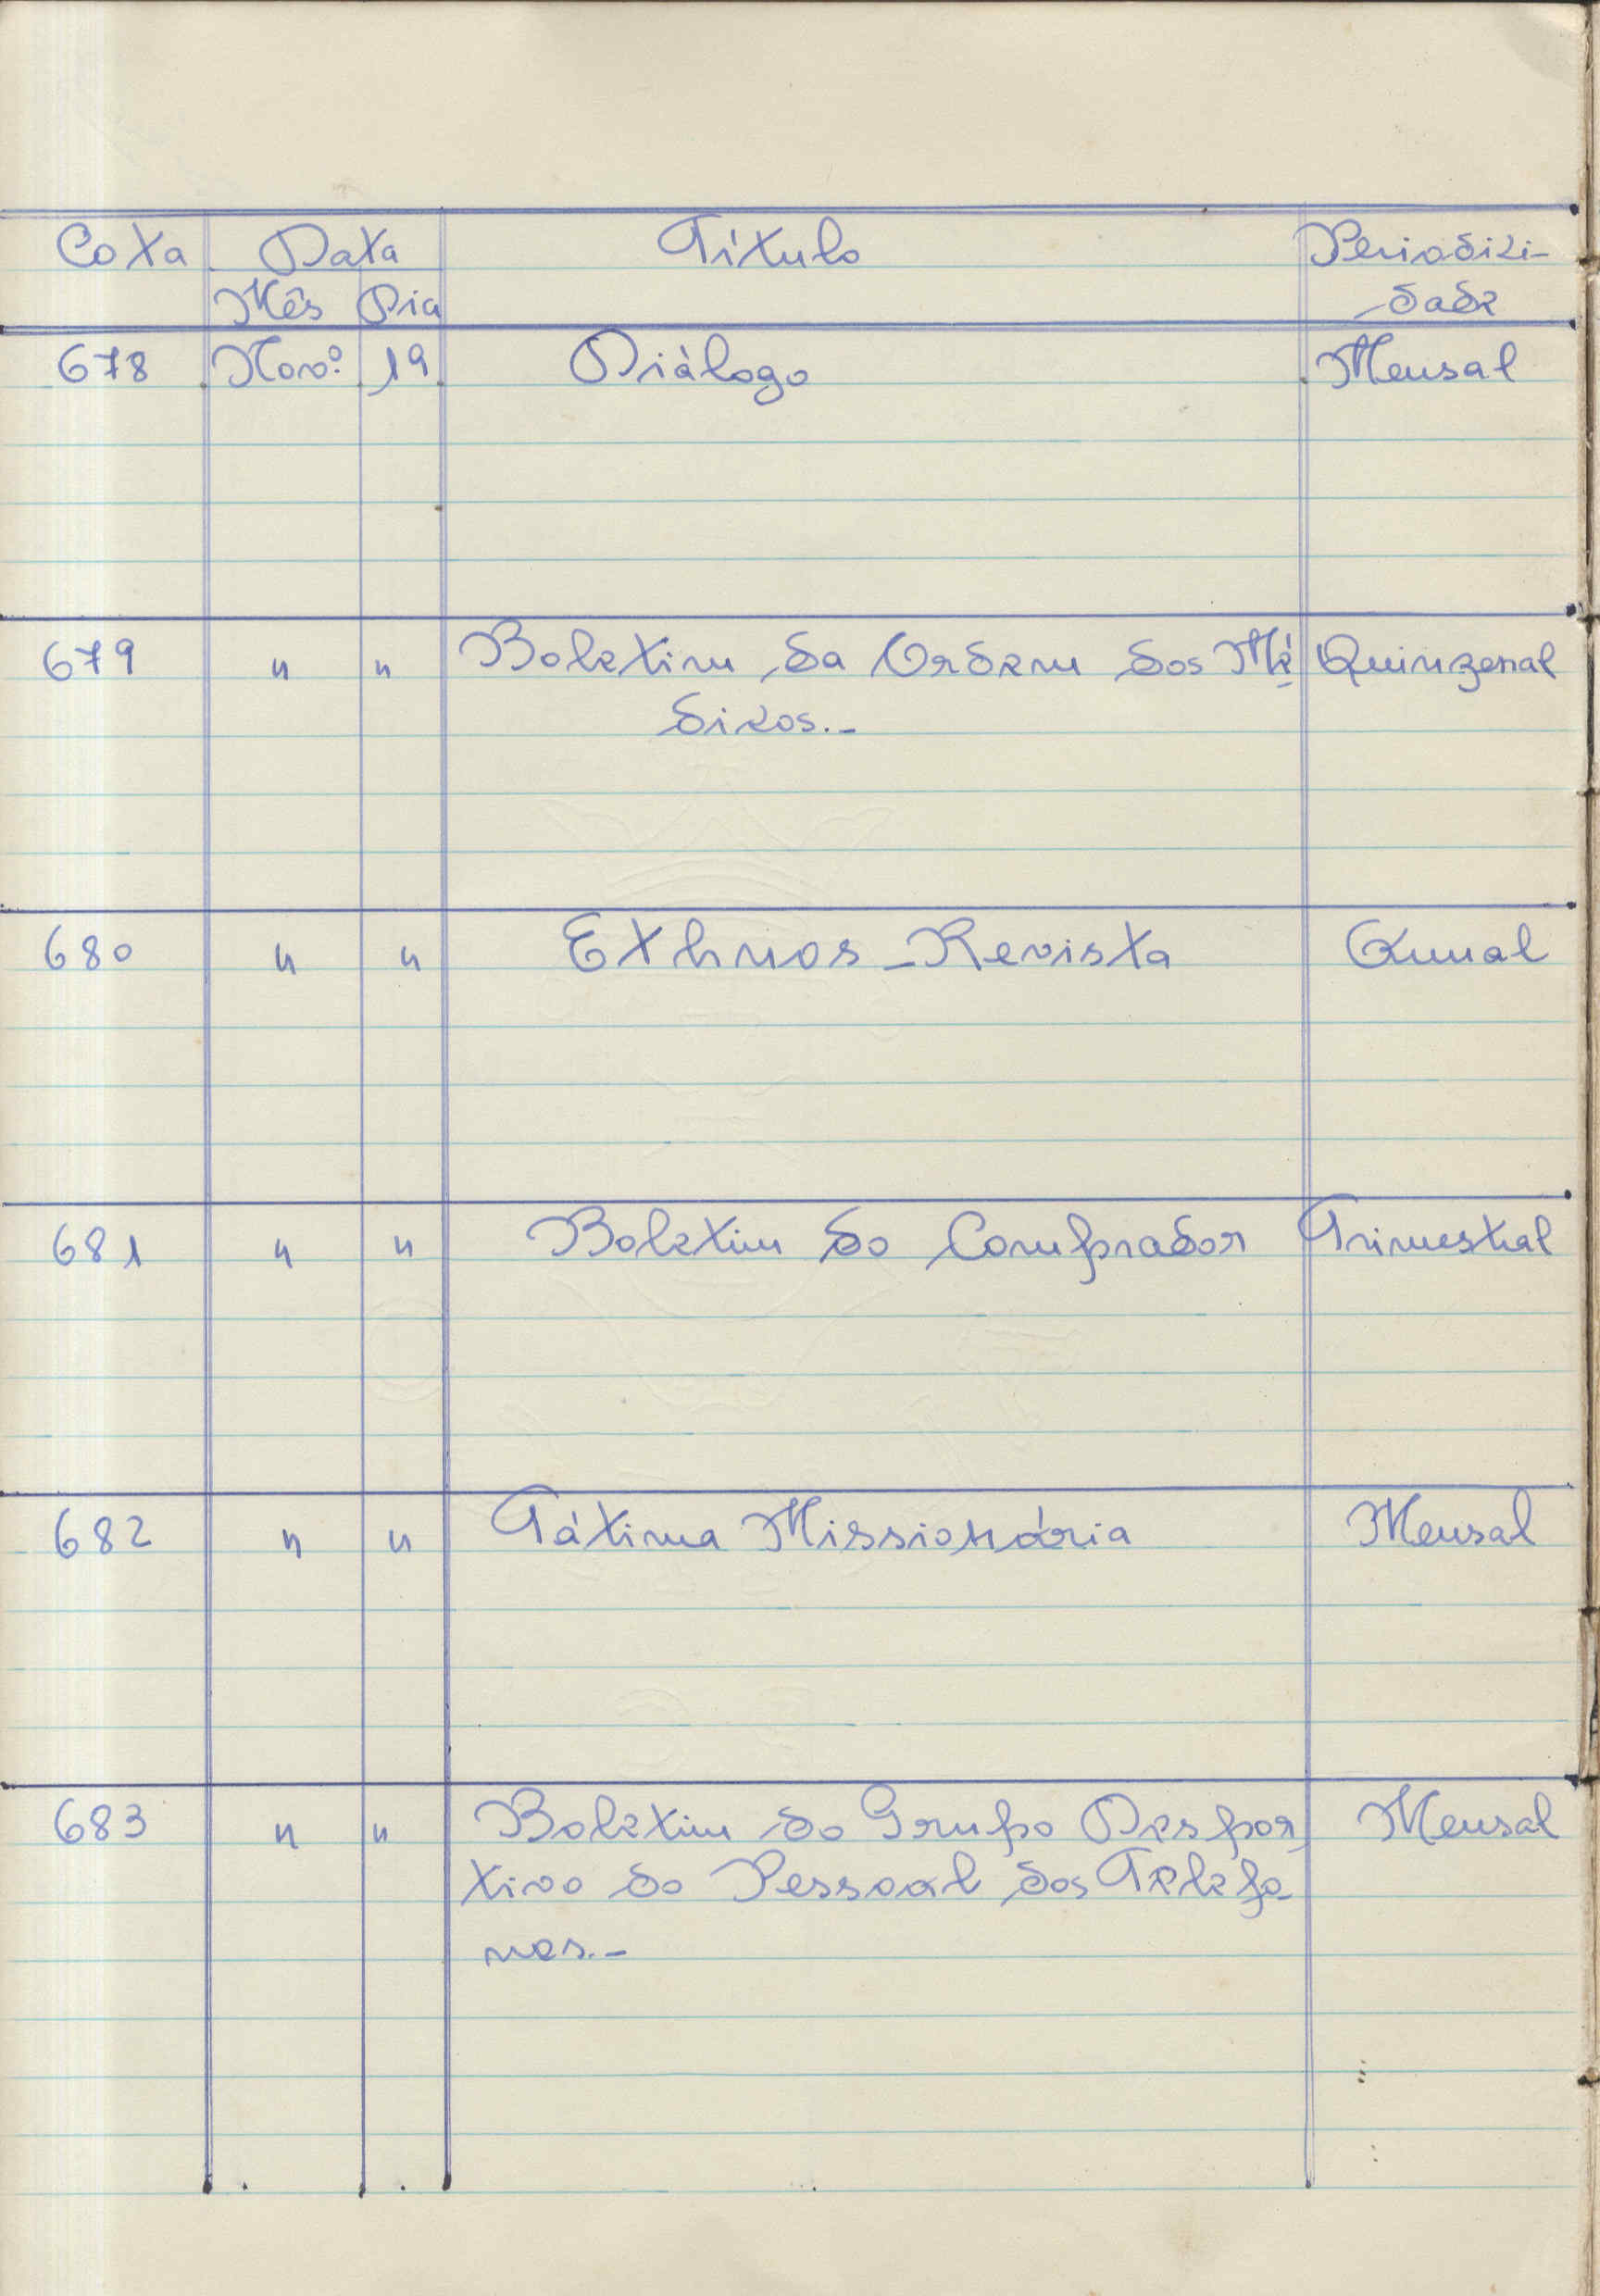 Cota Data Título Periodici-
Mês Dia dade
678 Novº 19 Diálogo Mensal
679 " " Boletim da Ordem dos Mé Quinzenal
dicos.-
680 " " Ethnos - Revista Anual
681 " " Boletim do Comprador Trimestral
682 " " Fátima Missionária Mensal
683 " " Boletim do Grupo Despor Mensal
tivo do Pessoal dos Telefo-
nes.-